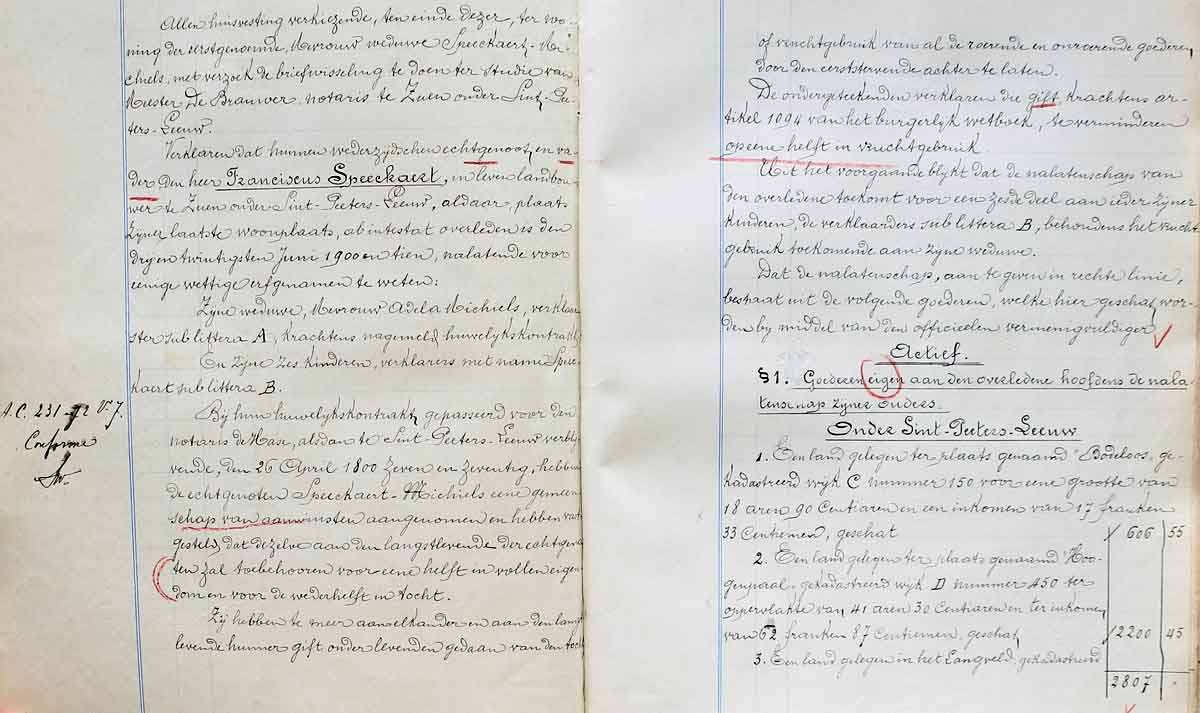 Allen huisvesting verkiezende, ten einde dezer, ter wo-
ning der eerstgenoemde, Mevrouw weduwe Speeckaert-Mi-
chiels, met verzoek de briefwisseling te doen ter studie van
Meester De Brauwer, notaris te Zuen onder Sint-Pee-
ters-Leeuw.
Verklaren dat hunnen wederzydschen echtgenoot en va-
der den heer Franciscus Speeckaert, in leven landbou-
wer te Zuen onder Sint-Peeters-Leeuw, aldaar, plaats
zyner laatste woonplaats, ab intestat overleden is den
dryentwintigsten Juni 1900 en tien, nalatende voor
eenige wettige erfgenamen te weten:
Zyne weduwe, Mevrouw Adela Michiels, verklaar
ster sub littera A, krachtens nagemeld huwelykskontrakt
En zyne zes kinderen, verklarers met name Spee
kaert sub littera B.
A.C. 231-72 Vo 7.
Conforme
Bij hun huwelykskontrakt, gepasseerd voor den
notaris de Mase, alsdan te Sint-Peeters-Leeuw verbly
vende, den 26 April 1800 zeven en zeventig, hebben
de echtgenoten Speeckaert-Michiels eene gemeen
schap van aanwinsten aangenomen en hebben vast
gesteld, dat dezelve aan den langstlevende der echtgeno
ten zal toebehooren voor eene helft in vollen eigen
dom en voor de wederhelft in tocht.
Zij hebben te meer aan elkander en aan den langst
levende hunner gift onder levenden gedaan van den tocht
of vruchtgebruik van al de roerende en onroerende goederen
door den eerststervende achter te laten.
De ondergeteekenden verklaren die gift, krachtens ar-
tikel 1094 van het burgerlyk wetboek, te verminderen
op eene helft in vruchtgebruik.
Uit het voorgaande blykt dat de nalatenschap van
den overledene toekomt voor een zesde deel aan ieder zyner
kinderen, de verklaarders sub littera B, behoudens het vrucht
gebruik toekomende aan zyne weduwe.
Dat de nalatenschap, aan te geven in rechte linie,
bestaat uit de volgende goederen, welke hier geschat wor-
den by middel van den officieelen vermenigvuldiger
Actief.
§1. Goederen eigen aan den overledene hoofdens de nala
tenschap zyner ouders.
Onder Sint-Peeters-Leeuw
1. Een land gelegen ter plaats genaamd "Bodeloos, ge-
kadastreerd wyk C nummer 150 voor eene grootte van
18 aren 90 Centiaren en een inkomen van 17 franken
33 Centiemen, geschat 606 55
2. Een land gelegen ter plaats genaamd "Hoo-
genpaal, gekadastreerd wyk D nummer 450 ter
oppervlakte van 41 aren 30 Centiaren en ter inkomen
van 62 franken 87 Centiemen, geschat 2200 45
3. Een land gelegen in het Langveld, gekadastreerd
2807 .